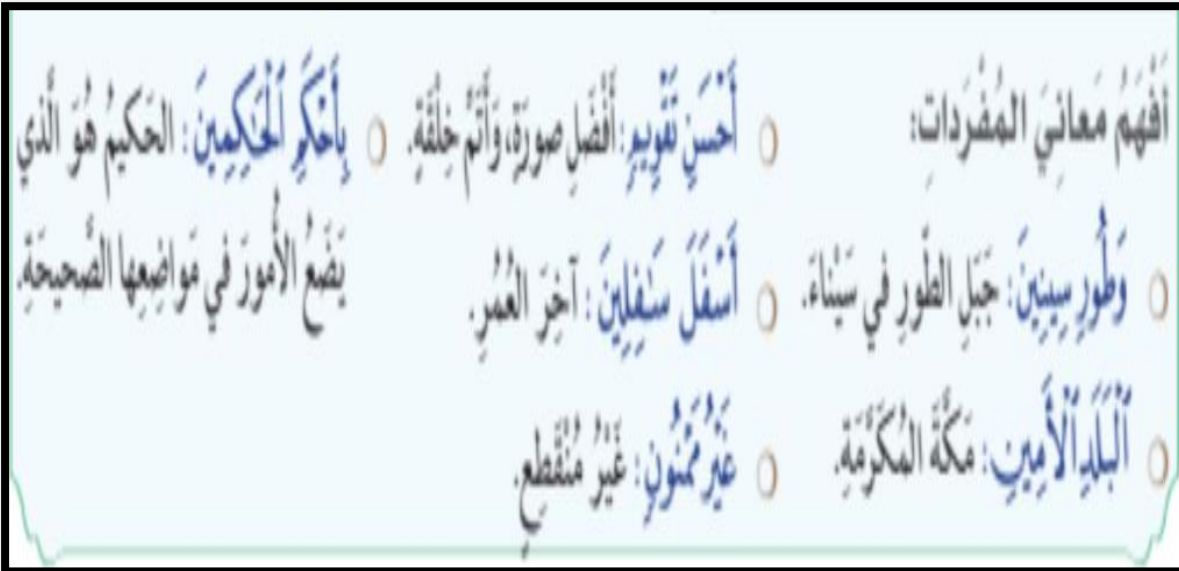 أَفْهَمُ مَعانِيَ المُفْرَداتِ:
وَطُورِ سِينِينَ: جَبَلِ الطّورِ في سَيْناءَ.
ٱلْبَلَدِ ٱلْأَمِينِ: مَكَّةَ المُكَرَّمَةِ.
أَحْسَنِ تَقْوِيمٍ: أَفْضَلِ صورَةٍ، وَأَتَمِّ خِلْقَةٍ.
أَسْفَلَ سَٰفِلِينَ: آخِرَ العُمُرِ.
غَيْرُ مَمْنُونٍ: غَيْرُ مُنْقَطِعٍ.
بِأَحْكَمِ ٱلْحَٰكِمِينَ: الحَكيمُ هُوَ الَّذي
يَضَعُ الأُمورَ في مَواضِعِها الصَّحيحَةِ.